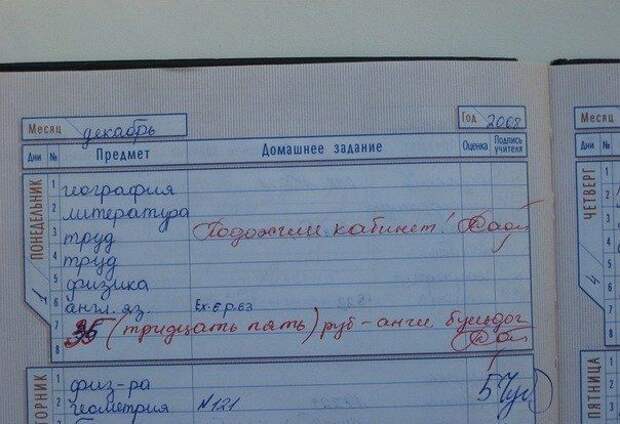 Месяц декабрь Год 2008
Дни № Предмет Домашнее задание Оценка Подпись учителя Дни №
ПОНЕДЕЛЬНИК 1
1 география
2 литература
3 труд Подожгли кабинет!
4 труд
5 физика
6 англ. яз. Ex. 6 p. 63
7 35 (тридцать пять) руб - англ. бульдог
8
ВТОРНИК
1 физ-ра 5
2 геометрия N 121
ЧЕТВЕРГ 4
1
2
3
4
5
6
7
8
ПЯТНИЦА
1
2